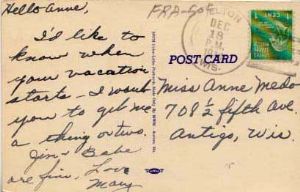 Hello Anne,
I'd like to
know when
your vacation
starts - I want
you to get me
a thing or two.
Jim & Babe
are fine, Love
Mary
POST CARD
DEC
18
P.M.
WIS.
1 CENT 1
Miss Anne Medo
708½ fifth Ave.
Antigo, Wis